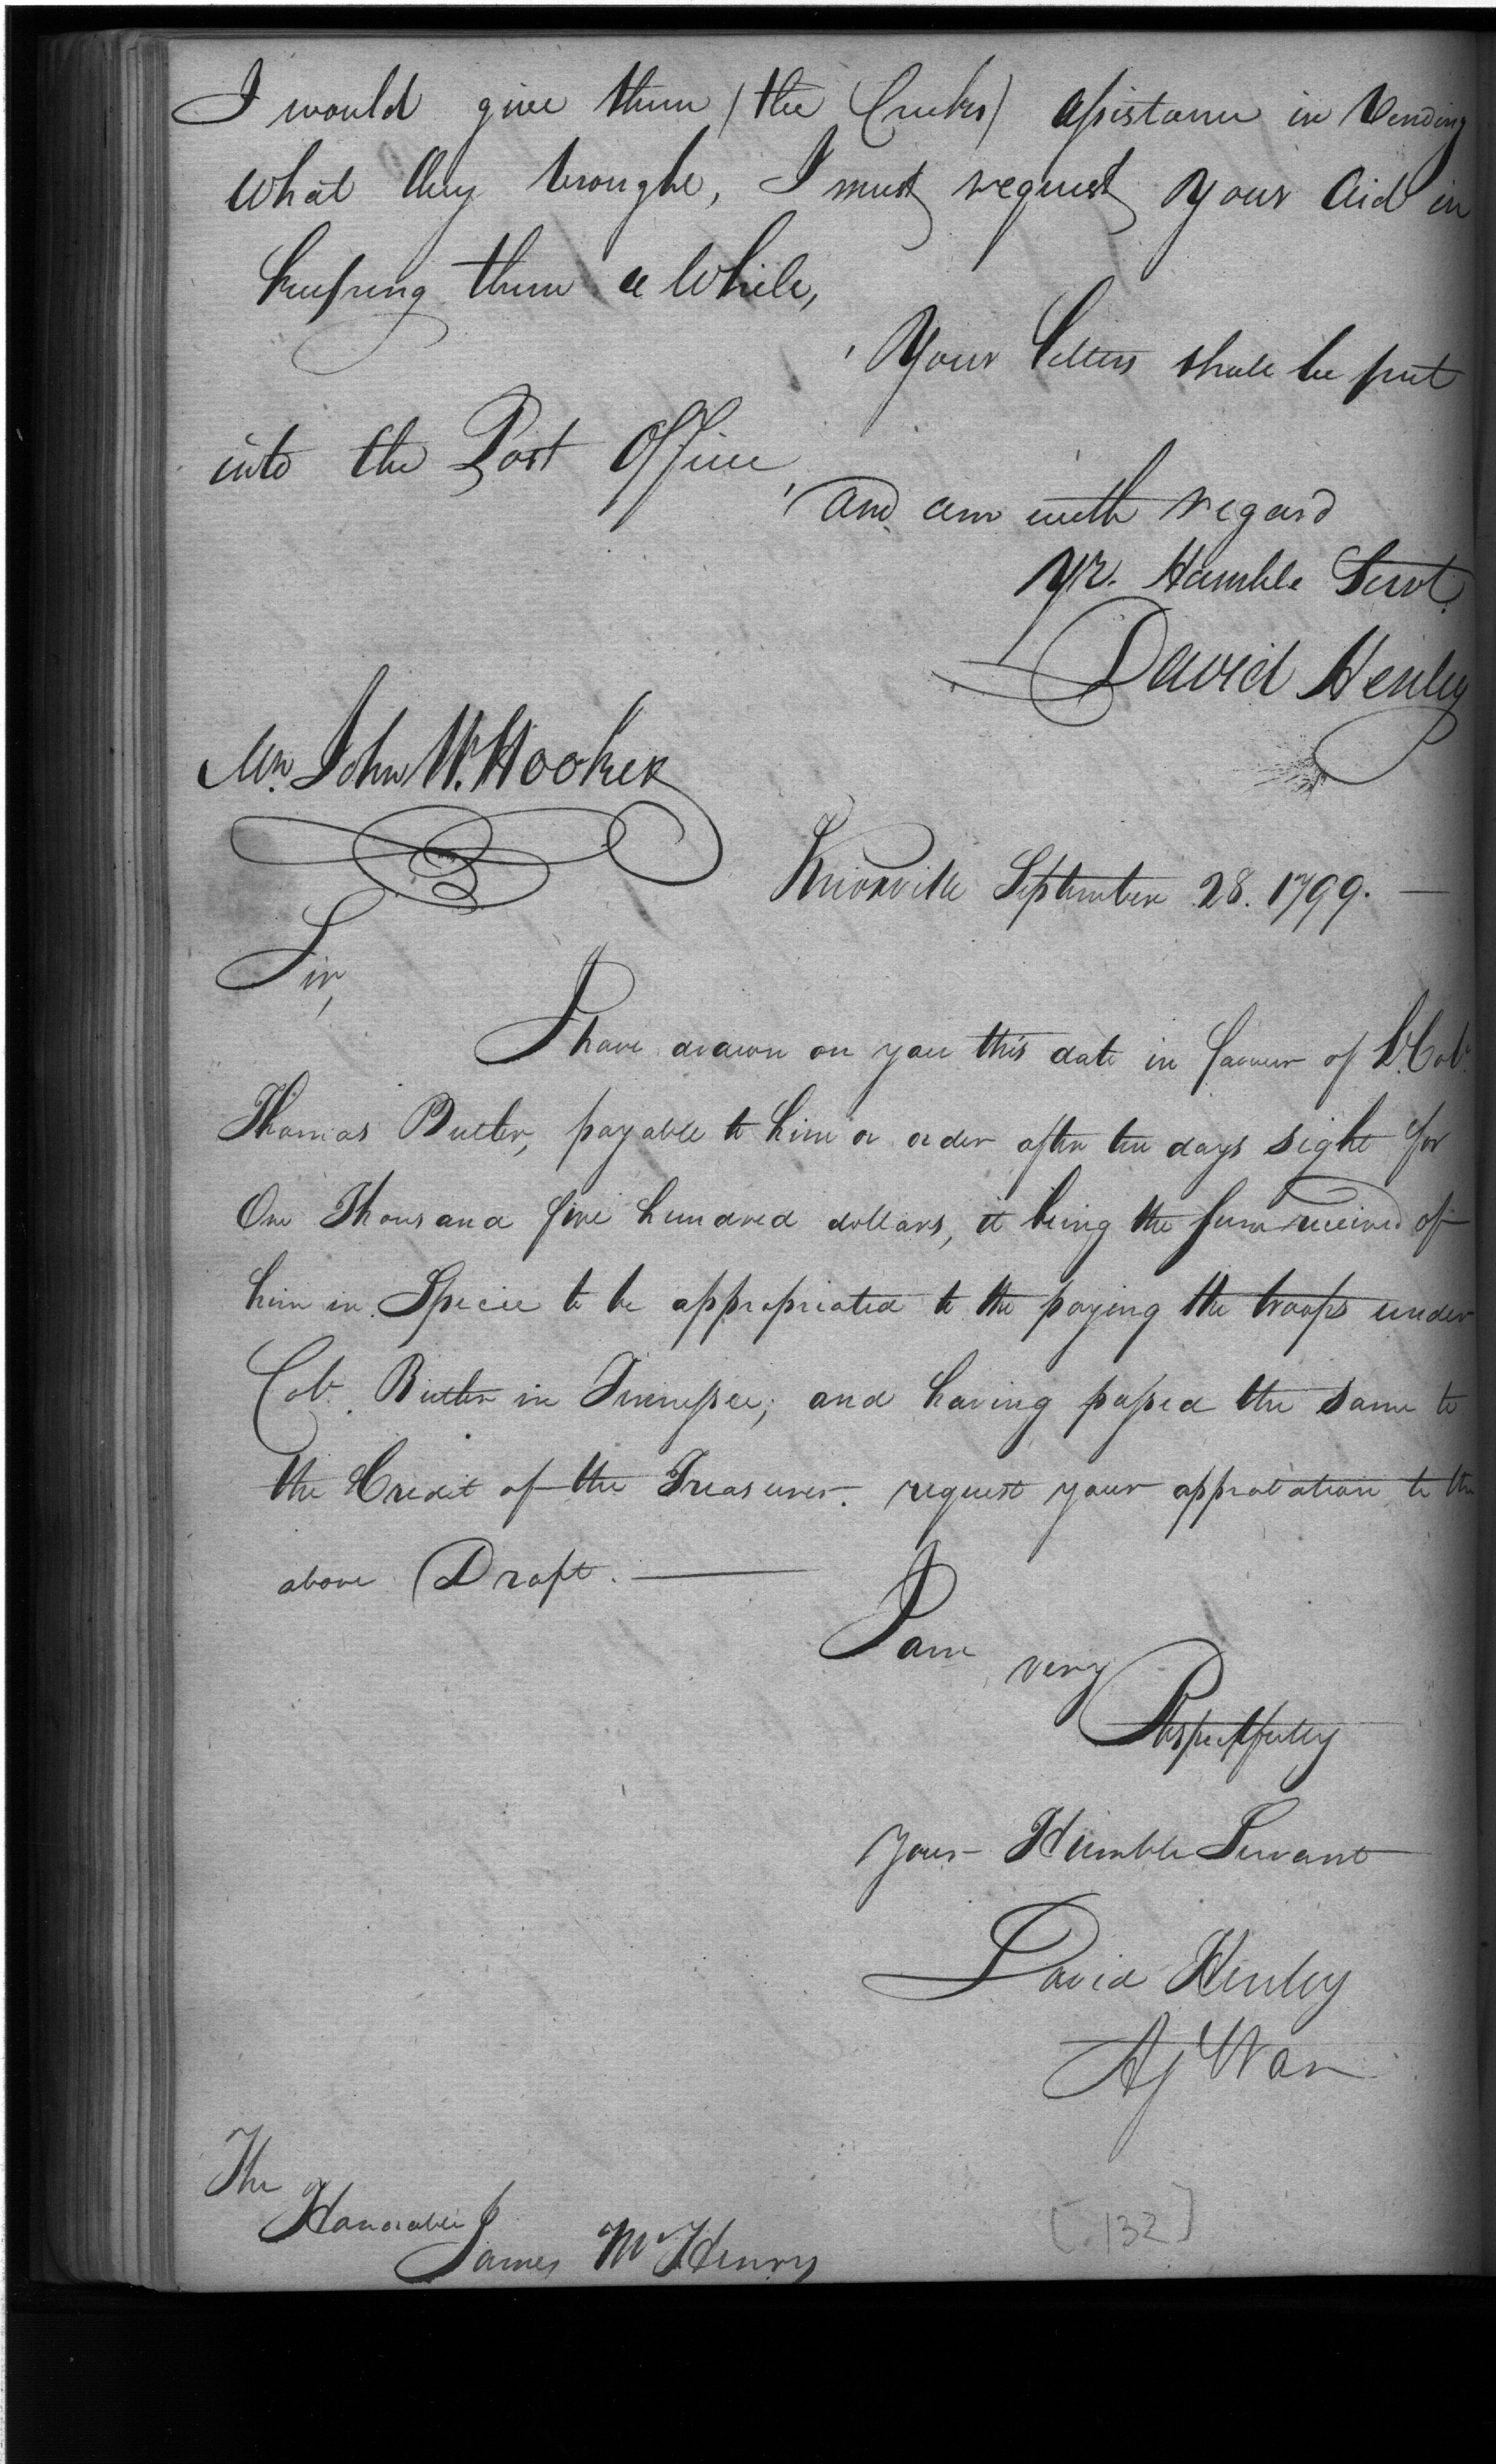 I would give them (the Creeks) assistance in Vending
what they brought, I must request your Aid in
keeping them a while,
Your Letters shall be put
into the Post Office
and am with regard
Yr. Humble Servt.
David Henley
Mr. John W. Hooker
Knoxville September 28. 1799. —
Sir,
I have drawn on you this date in favour of Lt. Col.
Thomas Butler, payable to him or order after ten days sight for
One Thousand five hundred dollars, it being the sum received of
him in Specie to be appropriated to the paying the troops under
Col. Butler in Tennessee; and having passed the same to
the Credit of the Treasurer. request your approbation to the
above Draft. —
I am
very
Respectfully
Your Humble Servant
David Henley
Ag War
The
Honorable
James McHenry
[132]